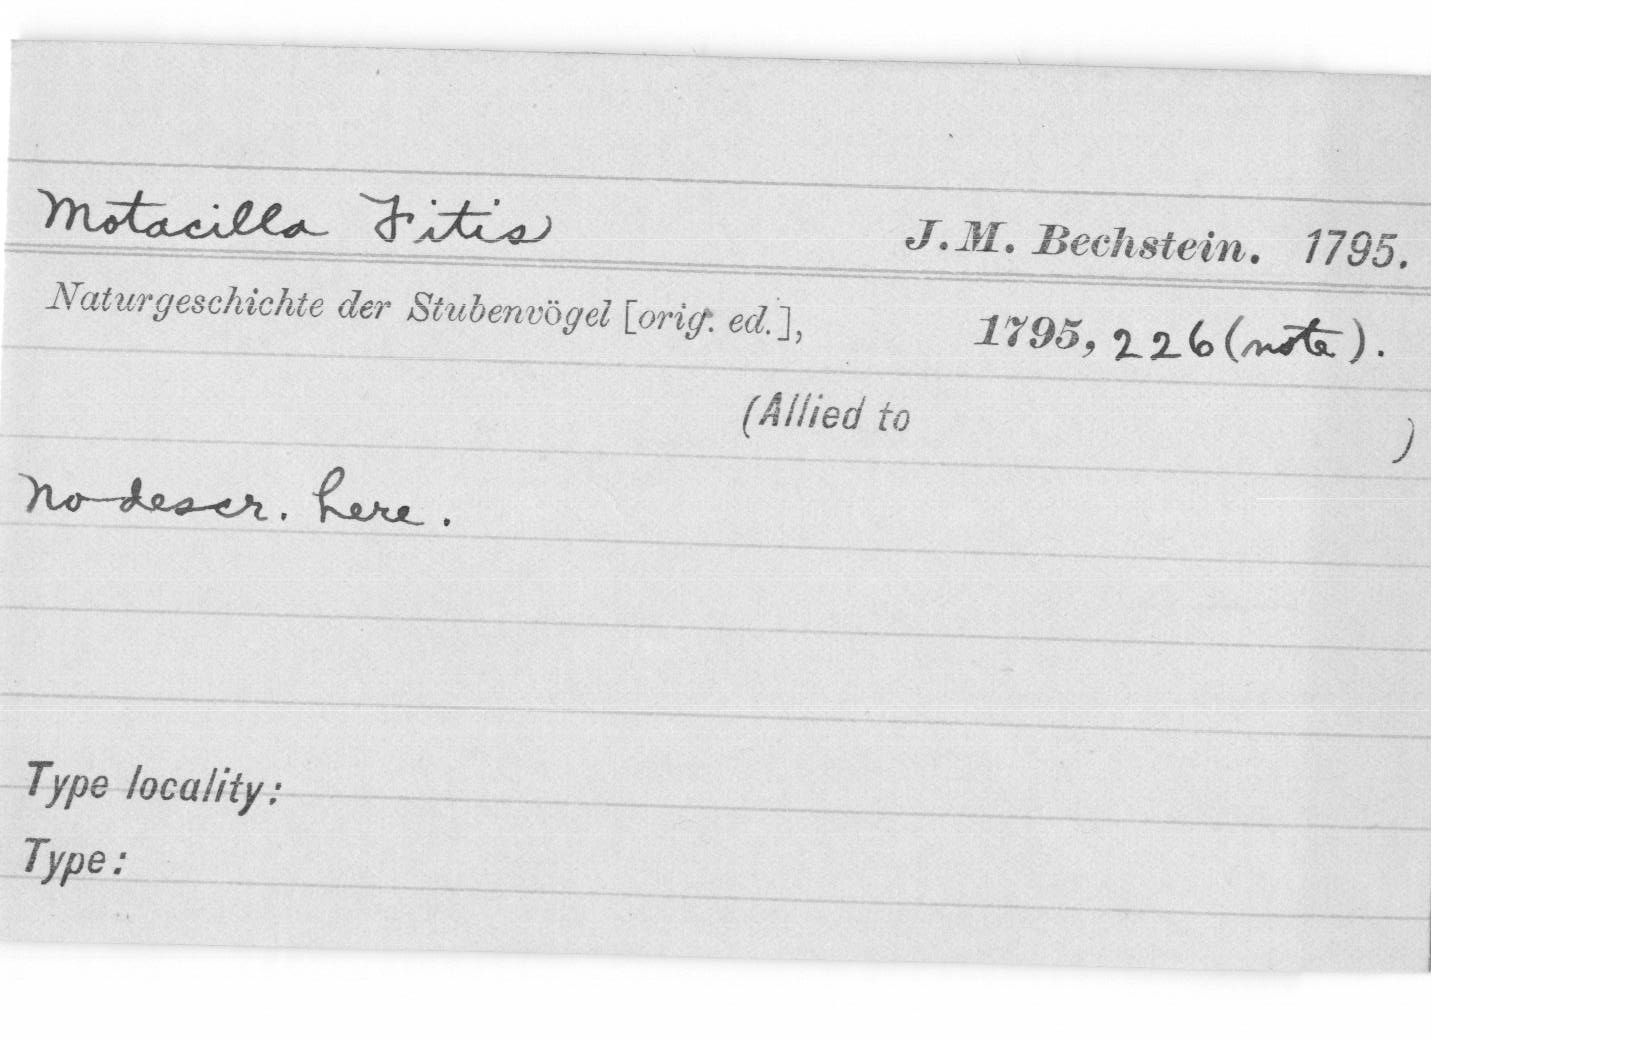 Motacilla Fitis J. M. Bechstein. 1795.
Naturgeschichte der Stubenvögel [orig. ed.], 1795, 226 (note).
(Allied to )
No descr. here.
Type locality:
Type: